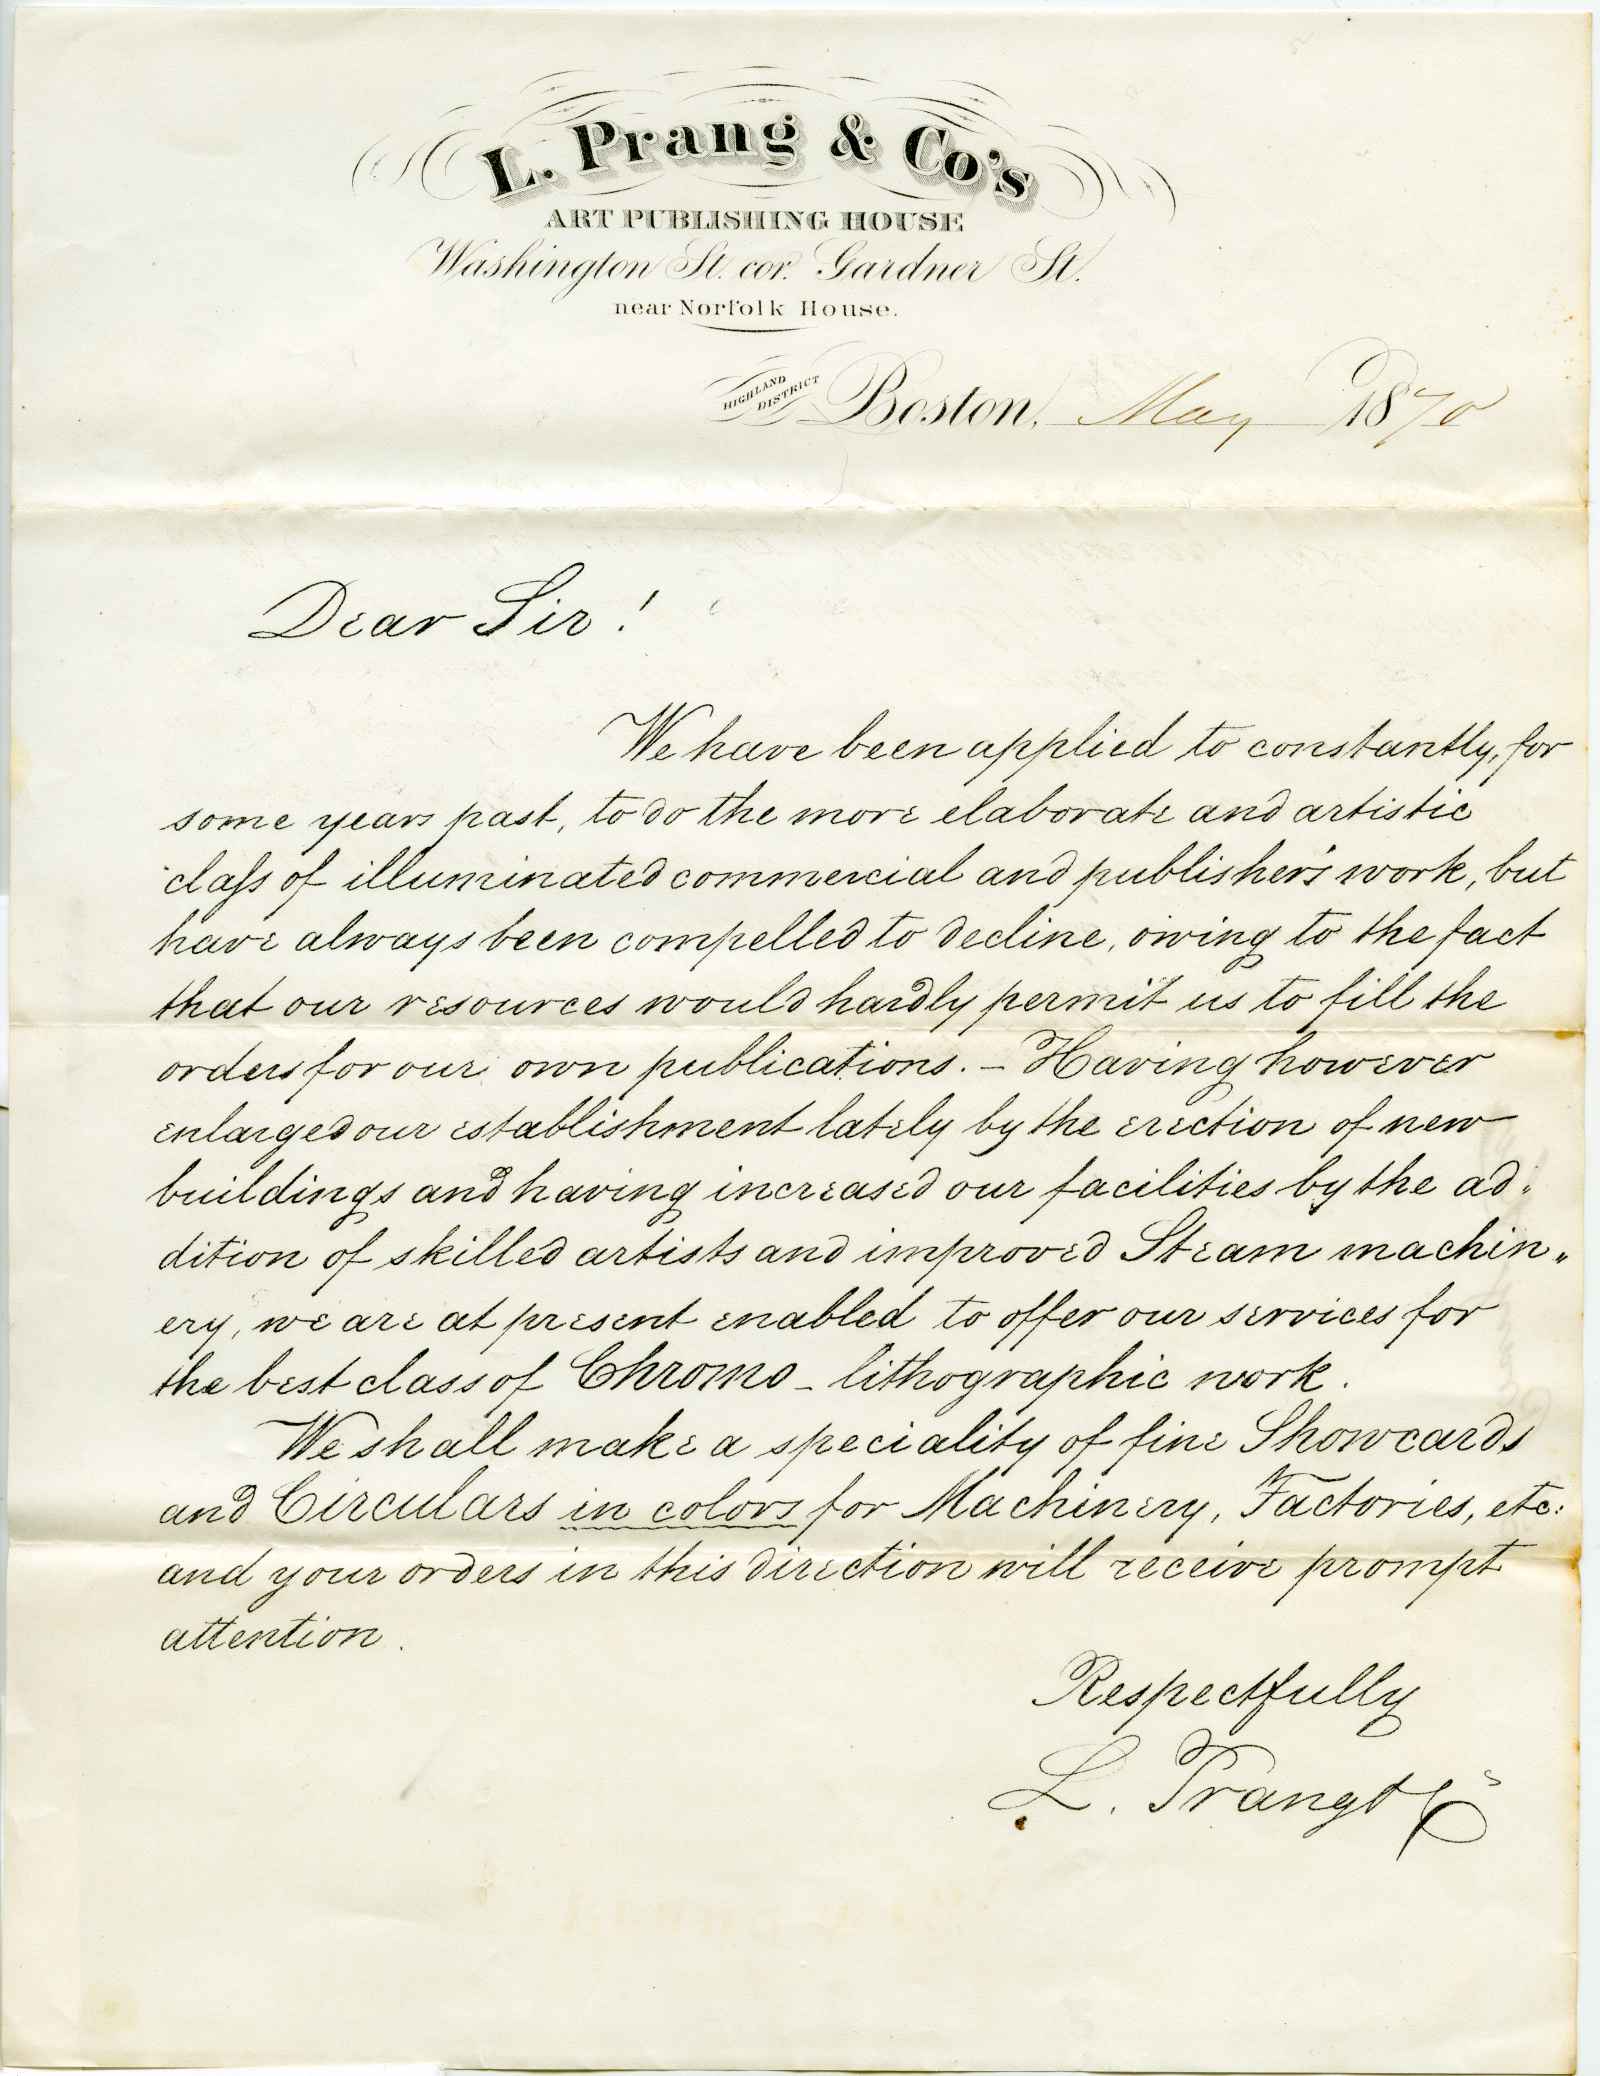 L. Prang & Co's
ART PUBLISHING HOUSE
Washington St. cor. Gardner St.
near Norfolk House.
HIGHLAND DISTRICT Boston, May 1870
Dear Sir!
We have been applied to constantly, for
some years past, to do the more elaborate and artistic
class of illuminated commercial and publisher's work, but
have always been compelled to decline, owing to the fact
that our resources would hardly permit us to fill the
orders for our own publications. – Having however
enlarged our establishment lately by the erection of new
buildings and having increased our facilities by the ad-
dition of skilled artists and improved Steam machin-
ery, we are at present enabled to offer our services for
the best class of Chromo-lithographic work.
We shall make a speciality of fine Showcards
and Circulars in colors for Machinery, Factories, etc:
and your orders in this direction will receive prompt
attention.
Respectfully
L. Prang & Co